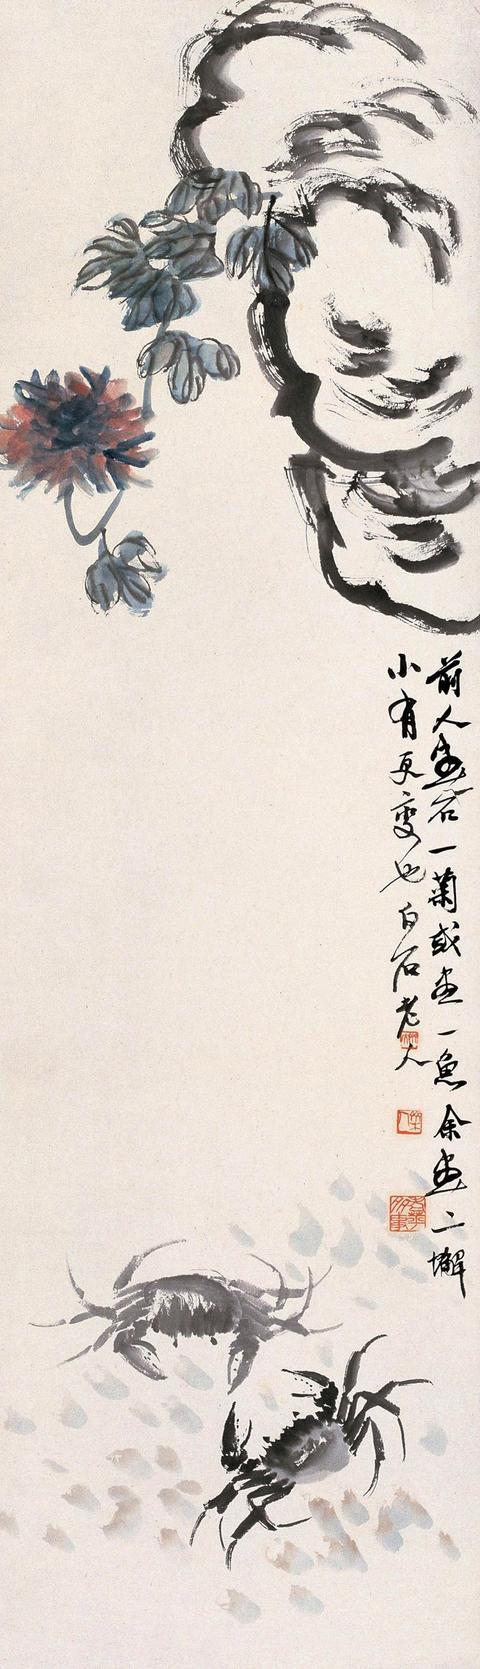 前人画石一菊或画一鱼余画二蠏
小有更变也白石老人